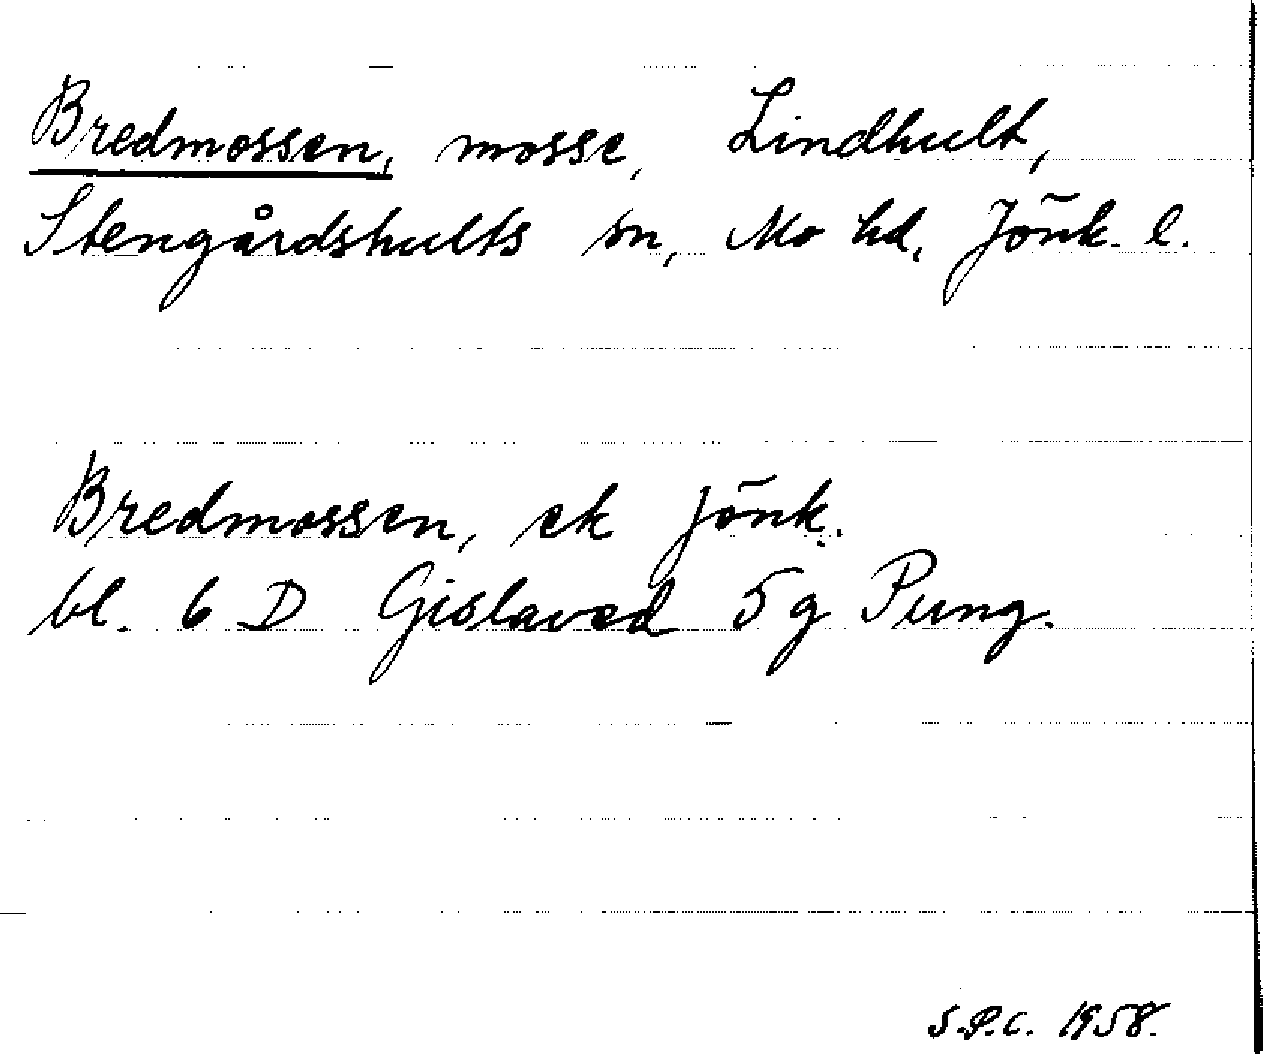 Bredmossen, mosse, Lindhult,
Stengårdshults sn, Mo hd, Jönk. l.
Bredmossen, ek Jönk.
bl. 6 D Gislaved 5 g Pung.
S.P.C. 1958.